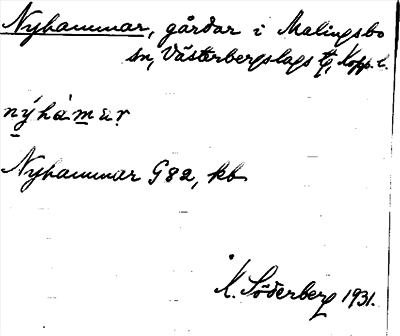 Nyhammar, gårdar i Malingsbo
sn, Västerbergslags tg, Kopp. l.
nýhàmar
Nyhammar G82, kb
K. Söderberg 1931.